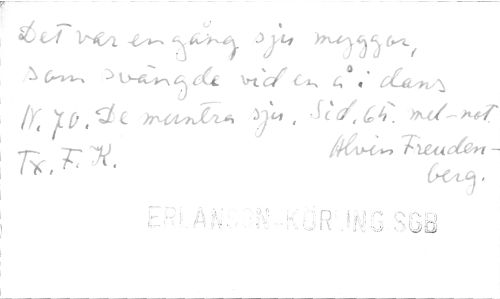 Det var en gång sju myggor,
som svängde vid en å i dans
N. 70. De muntra sju. Sid. 65. mel-not.
Tx. F. K. Alvin Freuden-
berg.
ERLANSON-KÖRLING SGB